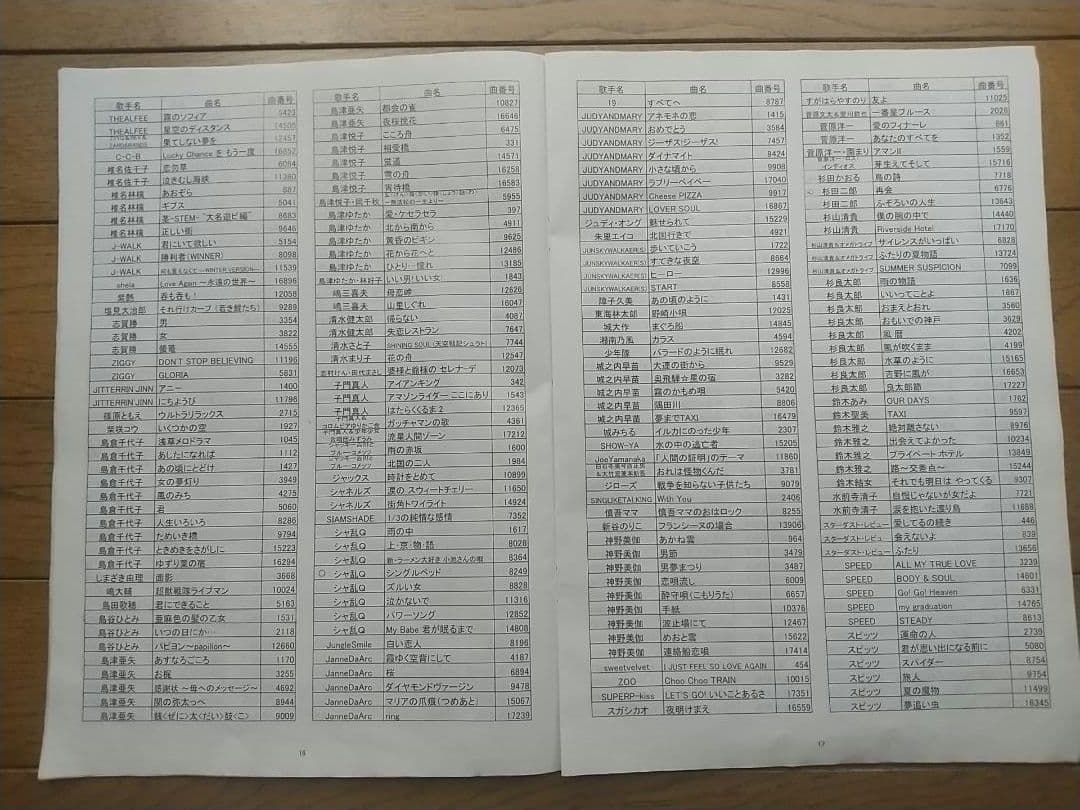 歌手名 曲名 曲番号
THEALFEE 霧のソフィア 9423
THEALFEE 星空のディスタンス 14505
果てしない夢を 12457
C-C-B Lucky Chance を もう一度 16857
椎名佐千子 恋勿草 6094
椎名佐千子 泣きむし海峡 11360
椎名林檎 あおぞら 887
椎名林檎 ギブス 5041
椎名林檎 茎-STEM-“大名遊ビ編” 8683
椎名林檎 正しい街 9646
J-WALK 君にいて欲しい 5154
J-WALK 勝利者(WINNER) 8098
J-WALK 何も言えなくて…-WINTER VERSION- 11539
shela Love Again ～永遠の世界～ 16896
紫艶 呑も呑も! 12058
塩見大治郎 それ行けカープ(若き鯉たち) 9289
志賀勝 男 3354
志賀勝 女 3822
志賀勝 儘竜 14555
ZIGGY DON'T STOP BELIEVING 11196
ZIGGY GLORIA 5831
JITTERRIN JINN アニー 1400
JITTERRIN JINN にちようび 11796
篠原ともえ ウルトラリラックス 2715
柴咲コウ いくつかの空 1927
島倉千代子 浅草メロドラマ 1045
島倉千代子 あしたになれば 1112
島倉千代子 あの頃にとどけ 1427
島倉千代子 女の夢灯り 3949
島倉千代子 風のみち 4275
島倉千代子 君 5060
島倉千代子 人生いろいろ 8286
島倉千代子 ためいき橋 9794
島倉千代子 ときめきをさがしに 15223
島倉千代子 ゆずり葉の宿 16294
しまざき由理 面影 3668
嶋大輔 超獣戦隊ライブマン 10024
島田歌穂 君にできること 5163
島谷ひとみ 亜麻色の髪の乙女 1531
島谷ひとみ いつの日にか… 2118
島谷ひとみ パピヨン～papillon～ 12660
島津亜矢 あすなろごころ 1170
島津亜矢 お梶 3255
島津亜矢 感謝状 ～母へのメッセージ～ 4692
島津亜矢 関の弥太っぺ 8944
島津亜矢 銭(ぜに)太(だい)鼓(こ) 9009
歌手名 曲名 曲番号
島津亜矢 都会の雀 10827
島津亜矢 夜桜挽花 16646
島津悦子 こころ舟 6475
島津悦子 相愛橋 331
島津悦子 蛍道 14571
島津悦子 雪の舟 16258
島津悦子 宵待橋 16583
島津悦子・岡千秋 5955
島津ゆたか 愛・ケセラセラ 397
島津ゆたか 北から南から 4911
島津ゆたか 黄昏のビギン 9625
島津ゆたか 花から花へと 12486
島津ゆたか ひとり…憧れ 13185
島津ゆたか・林好子 いい男!いい女! 1843
嶋三喜夫 母恋岬 12626
嶋三喜夫 山里しぐれ 16047
清水健太郎 帰らない 4087
清水健太郎 失恋レストラン 7647
清水さと子 SHINING SOUL(天空戦記シュラト) 7744
清水まり子 花の舟 12547
志村けん・田代まさし 婆様と爺様のセレナーデ 12073
子門真人 アイアンキング 342
子門真人 アマゾンライダー ここにあり 1543
子門真人 はたらくくるま2 12365
ガッチャマンの歌 4361
流星人間ゾーン 17212
雨の赤坂 1600
北国の二人 1984
ジャックス 時計をとめて 10899
シャネルズ 涙の スウィートチェリー 11650
シャネルズ 街角トワイライト 14924
SIAMSHADE 1/3の純情な感情 7352
シャ乱Q 雨の中 1617
シャ乱Q 上・京・物・語 8028
シャ乱Q 新・ラーメン大好き 小池さんの唄 8364
シャ乱Q シングルベッド 8249
シャ乱Q ズルい女 8828
シャ乱Q 泣かないで 11316
シャ乱Q パワーソング 12852
シャ乱Q My Babe 君が眠るまで 14808
JungleSmile 白い恋人 8196
JanneDaArc 霞ゆく空背にして 4187
JanneDaArc 桜 6894
JanneDaArc ダイヤモンドヴァージン 9478
JanneDaArc マリアの爪痕(つめあと) 15067
JanneDaArc ring 17239
16
歌手名 曲名 曲番号
19 すべてへ 8787
JUDYANDMARY アネモネの恋 1415
JUDYANDMARY おめでとう 3584
JUDYANDMARY ジーザス!ジーザス! 7457
JUDYANDMARY ダイナマイト 8424
JUDYANDMARY 小さな頃から 9908
JUDYANDMARY ラブリーベイベー 17040
JUDYANDMARY Cheese PIZZA 9917
JUDYANDMARY LOVER SOUL 16867
ジュディ・オング 魅せられて 15229
朱里エイコ 北国行きで 4921
JUN SKY WALKER(S) 歩いていこう 1722
JUN SKY WALKER(S) すてきな夜空 8664
JUN SKY WALKER(S) ヒーロー 12996
JUN SKY WALKER(S) START 8558
障子久美 あの頃のように 1431
東海林太郎 野崎小唄 12025
城大作 まぐろ船 14845
湘南乃風 カラス 4594
少年隊 バラードのように眠れ 12682
城之内早苗 大連の街から 9529
城之内早苗 奥飛騨☆星の宿 3282
城之内早苗 霧のかもめ唄 5420
城之内早苗 隅田川 8806
城之内早苗 夢までTAXI 16479
城みちる イルカにのった少年 2307
SHOW-YA 水の中の逃亡者 15205
JoeYamanaka 「人間の証明」のテーマ 11860
おれは怪物くんだ 3781
ジローズ 戦争を知らない子供たち 9079
SINGLIKETALKING With You 2406
慎吾ママ 慎吾ママのおはロック 8255
新谷のりこ フランシーヌの場合 13906
神野美伽 あかね雲 964
神野美伽 男節 3479
神野美伽 男夢まつり 3487
神野美伽 恋唄流し 6009
神野美伽 酔守唄(こもりうた) 6657
神野美伽 手紙 10376
神野美伽 波止場にて 12467
神野美伽 めおと雲 15622
神野美伽 連絡船恋唄 17414
sweetvelvet I JUST FEEL SO LOVE AGAIN 454
ZOO Choo Choo TRAIN 10015
SUPERP-kiss LET'S GO! いいことあるさ 17351
スガシカオ 夜明けまえ 16559
歌手名 曲名 曲番号
すがはらやすのり 友よ 11025
菅原文太&愛川欽也 一番星ブルース 2028
菅原洋一 愛のフィナーレ 661
菅原洋一 あなたのすべてを 1352
菅原洋一・園まり アマン II 1559
芽生えてそして 15716
杉田かおる 鳥の詩 7718
杉田二郎 再会 6776
杉田二郎 ふぞろいの人生 13643
杉山清貴 僕の腕の中で 14440
杉山清貴 Riverside Hotel 17170
杉山清貴&オメガトライブ サイレンスがいっぱい 6828
杉山清貴&オメガトライブ ふたりの夏物語 13724
杉山清貴&オメガトライブ SUMMER SUSPICION 7099
杉良太郎 雨の物語 1636
杉良太郎 いいってことよ 1867
杉良太郎 おまえとおれ 3560
杉良太郎 おもいでの神戸 3629
杉良太郎 風暦 4202
杉良太郎 風が吹くまま 4199
杉良太郎 水草のように 15165
杉良太郎 吉野に風が 16653
杉良太郎 良太郎節 17227
鈴木あみ OUR DAYS 1762
鈴木聖美 TAXI 9597
鈴木雅之 絶対離さない 8976
鈴木雅之 出会えてよかった 10234
鈴木雅之 プライベートホテル 13849
鈴木雅之 路～交差点～ 15244
鈴木結女 それでも明日は やってくる 9307
水前寺清子 自惚じゃないが女だよ 7721
水前寺清子 涙を抱いた渡り鳥 11689
スターダスト・レビュー 愛してるの続き 446
スターダスト・レビュー 会えないよ 839
スターダスト・レビュー ふたり 13656
SPEED ALL MY TRUE LOVE 3239
SPEED BODY & SOUL 14601
SPEED Go! Go! Heaven 6331
SPEED my graduation 14765
SPEED STEADY 8613
スピッツ 運命の人 2739
スピッツ 君が思い出になる前に 5080
スピッツ スパイダー 8754
スピッツ 旅人 9754
スピッツ 夏の魔物 11499
スピッツ 夢追い虫 16345
17